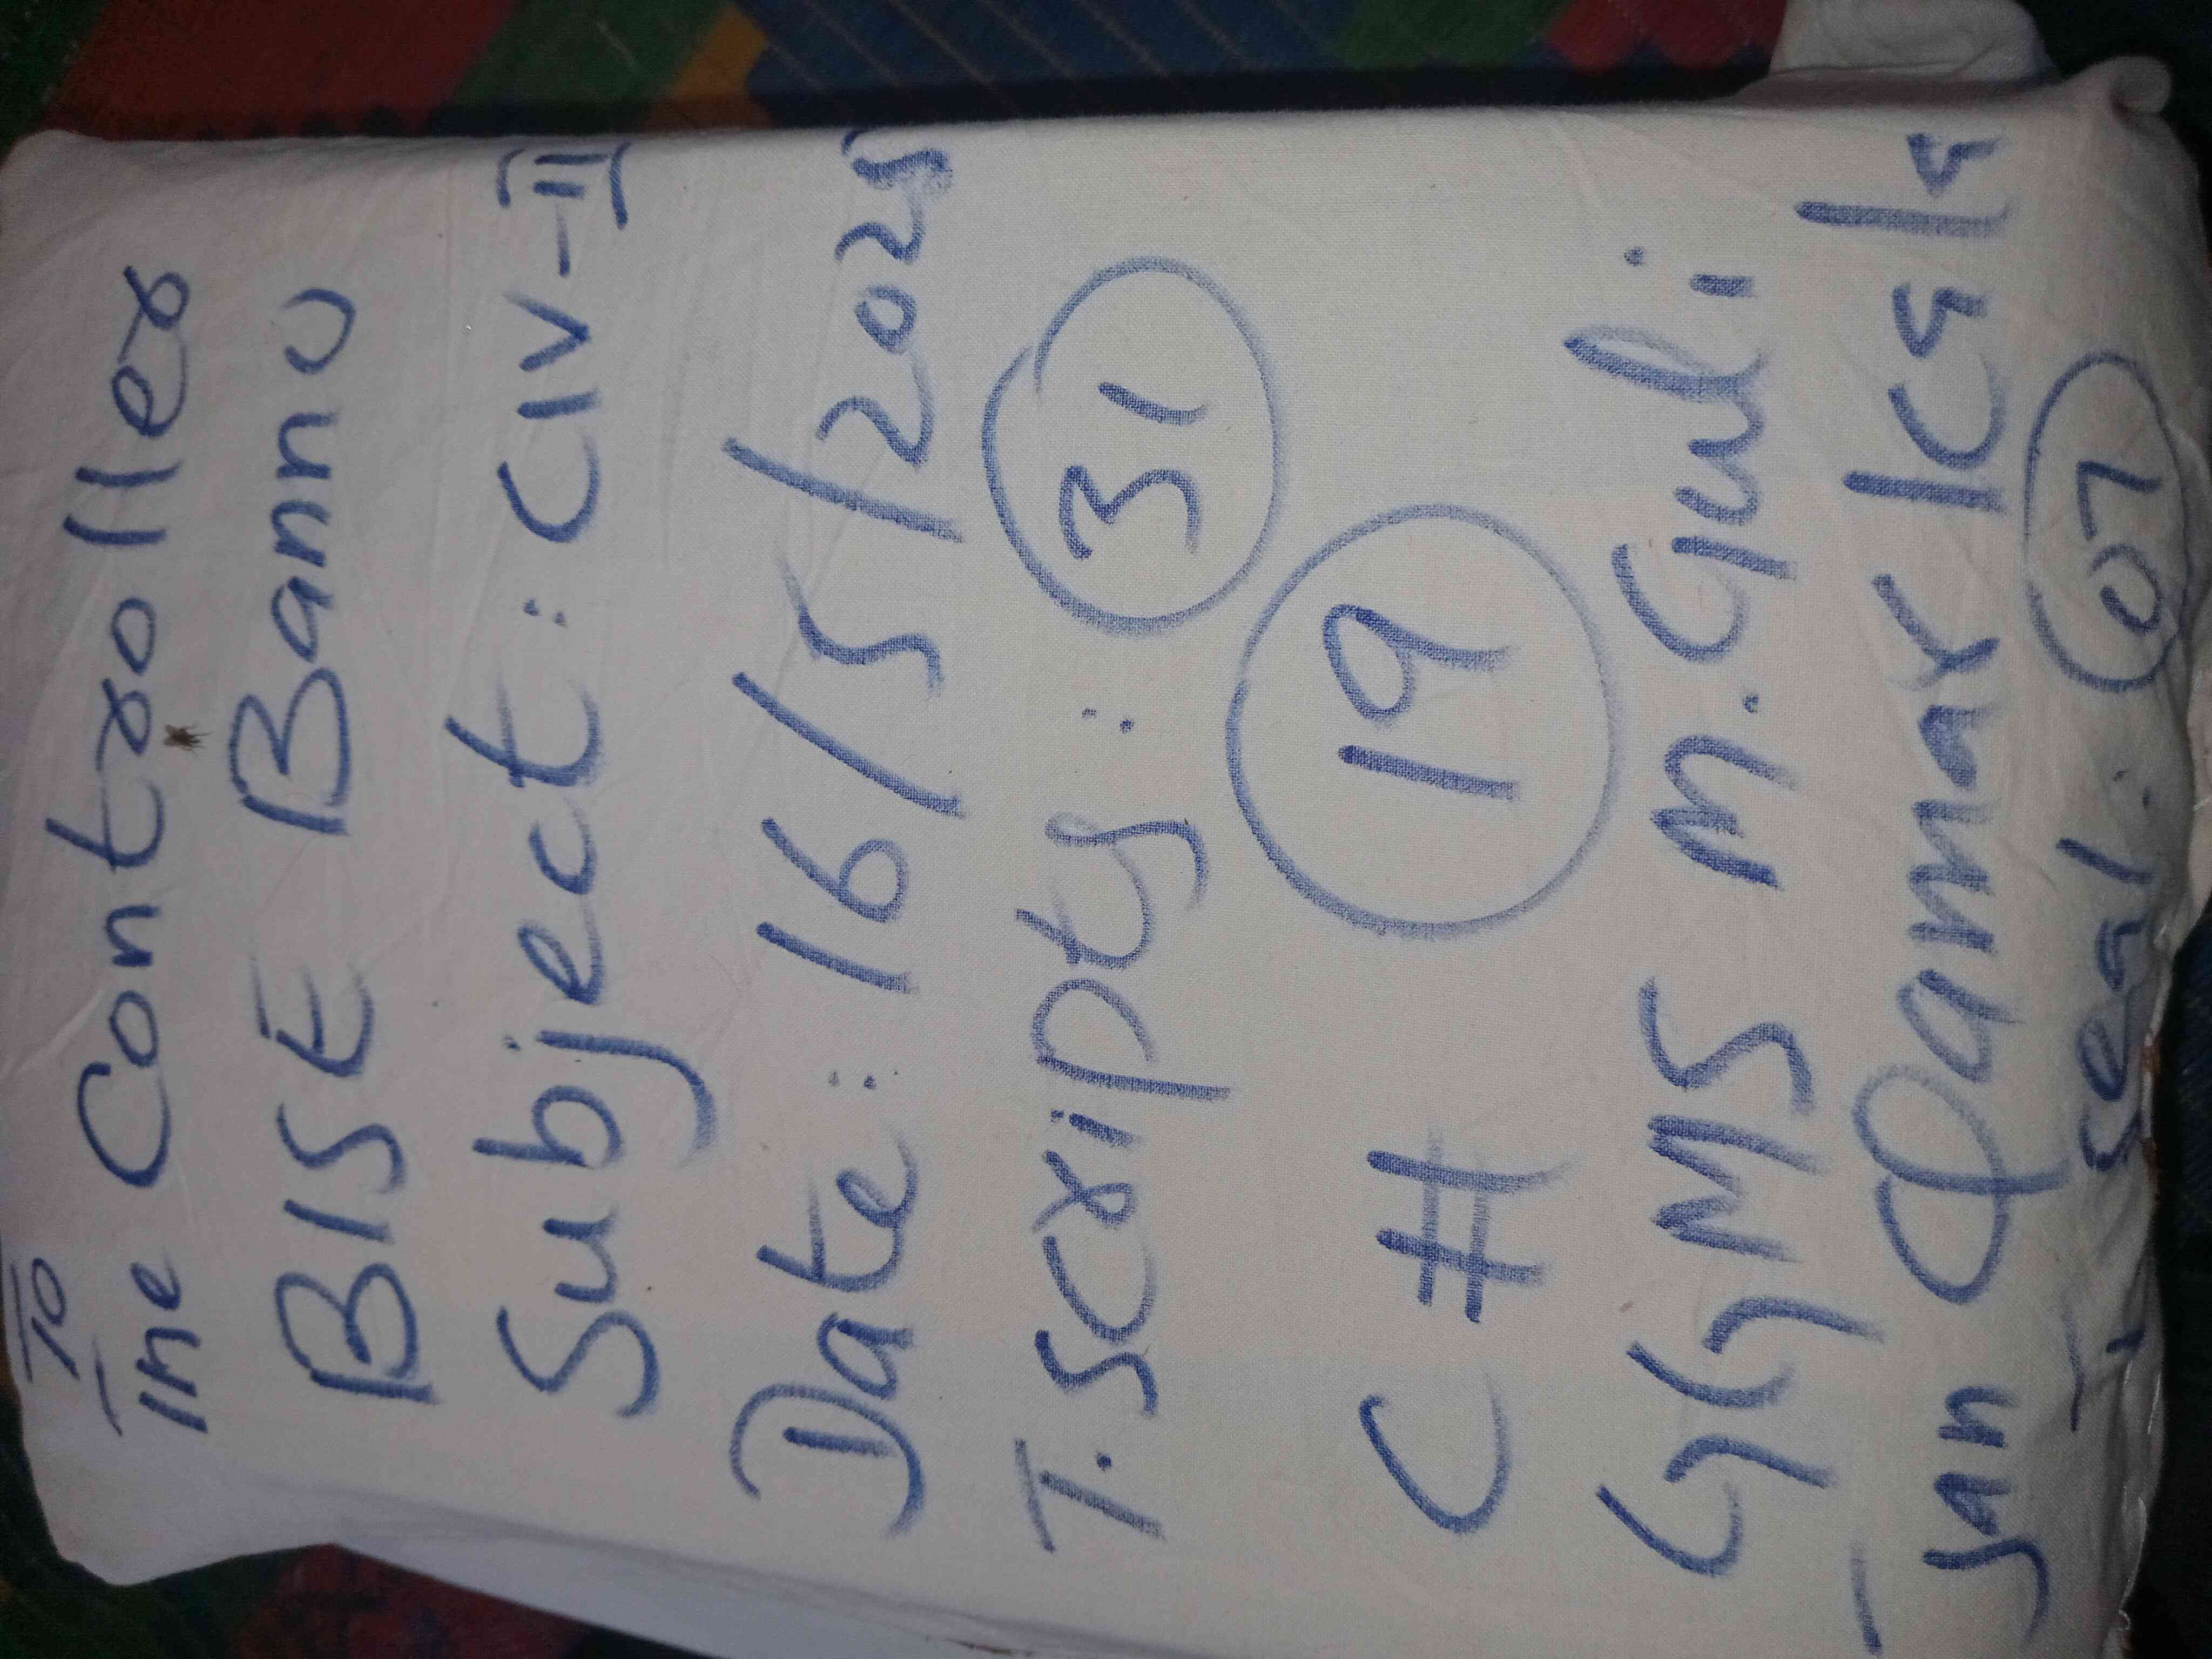 To
The Controller
BISE Bannu
Subject: CIV-II
Date: 16/5/2025
T. Scripty: 31
C # 19
GGMS M. Guli
Jan Qamar Kala
T Seal: 07